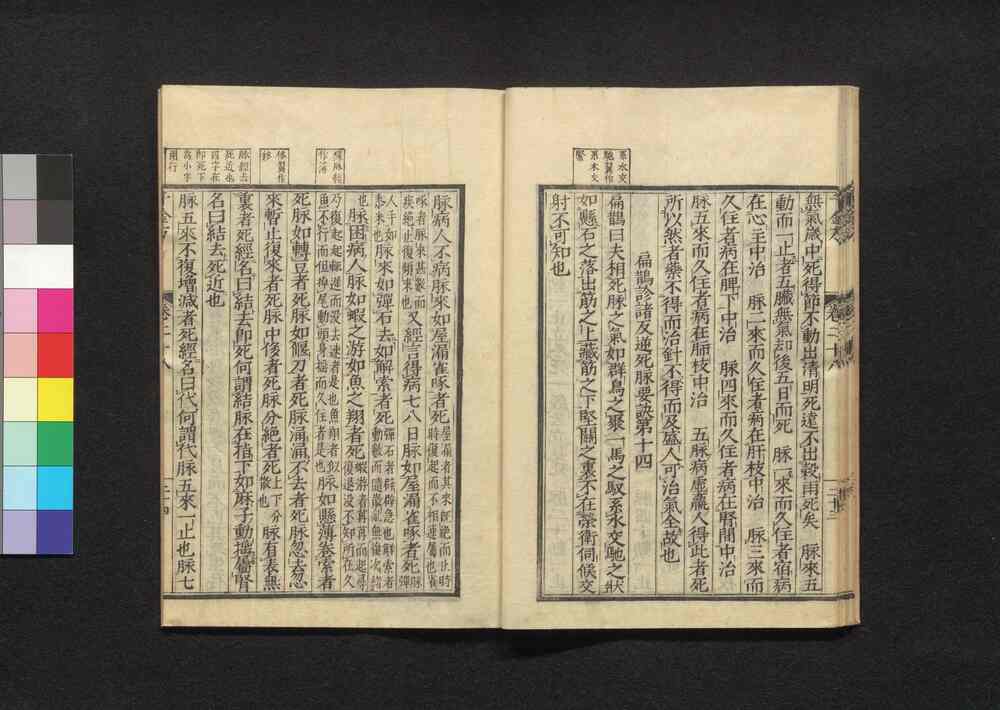 無氣歲中死得節不動出清明死遠不出穀雨死矣　脉來五
動而一止者五臟無氣却後五日而死　脉一來而久住者宿病
在心主中治　脉二來而久住者病在肝枝中治　脉三來而
久住者病在脾下中治　脉四來而久住者病在腎間中治
脉五來而久住者病在肺枝中治　五脉病虛羸人得此者死
所以然者藥不得而治針不得而及盛人可治氣全故也
扁鵲診諸反逆死脉要訣第十四
扁鵲曰夫相死脉之氣如群鳥之聚一馬之馭系水交馳之狀
如懸石之落出筋之上藏筋之下堅關之裏不在榮衛伺候交
射不可知也
脉病人不病脉來如屋漏雀啄者死屋漏者其來既絕而止時
時復起而不相連屬也雀
啄者脉來甚數而
疾絕止復頓來也又經言得病七八日脉如屋漏雀啄者死脉彈
人手如
黍米也脉來如彈石去如解索者死彈石者辟辟急也解索者
動數而隨散亂無復次緒
也脉困病人脉如蝦之游如魚之翔者死蝦游者苒苒而起尋
復退没不知所在久
乃復起起輒遲而没去速者是也魚翔者似
魚不行而但掉尾動頭身搖而久住者是也脉如懸薄卷索者
死脉如轉豆者死脉如偃刀者死脉涌涌不去者死脉忽去忽
來暫止復來者死脉中侈者死脉分絕者死上下分
散也脉有表無
裏者死經名曰結去即死何謂結脉在指下如麻子動搖屬腎
名曰結去死近也
脉五來一止不復增減者死經名曰代何謂代脉五來一止也脉七